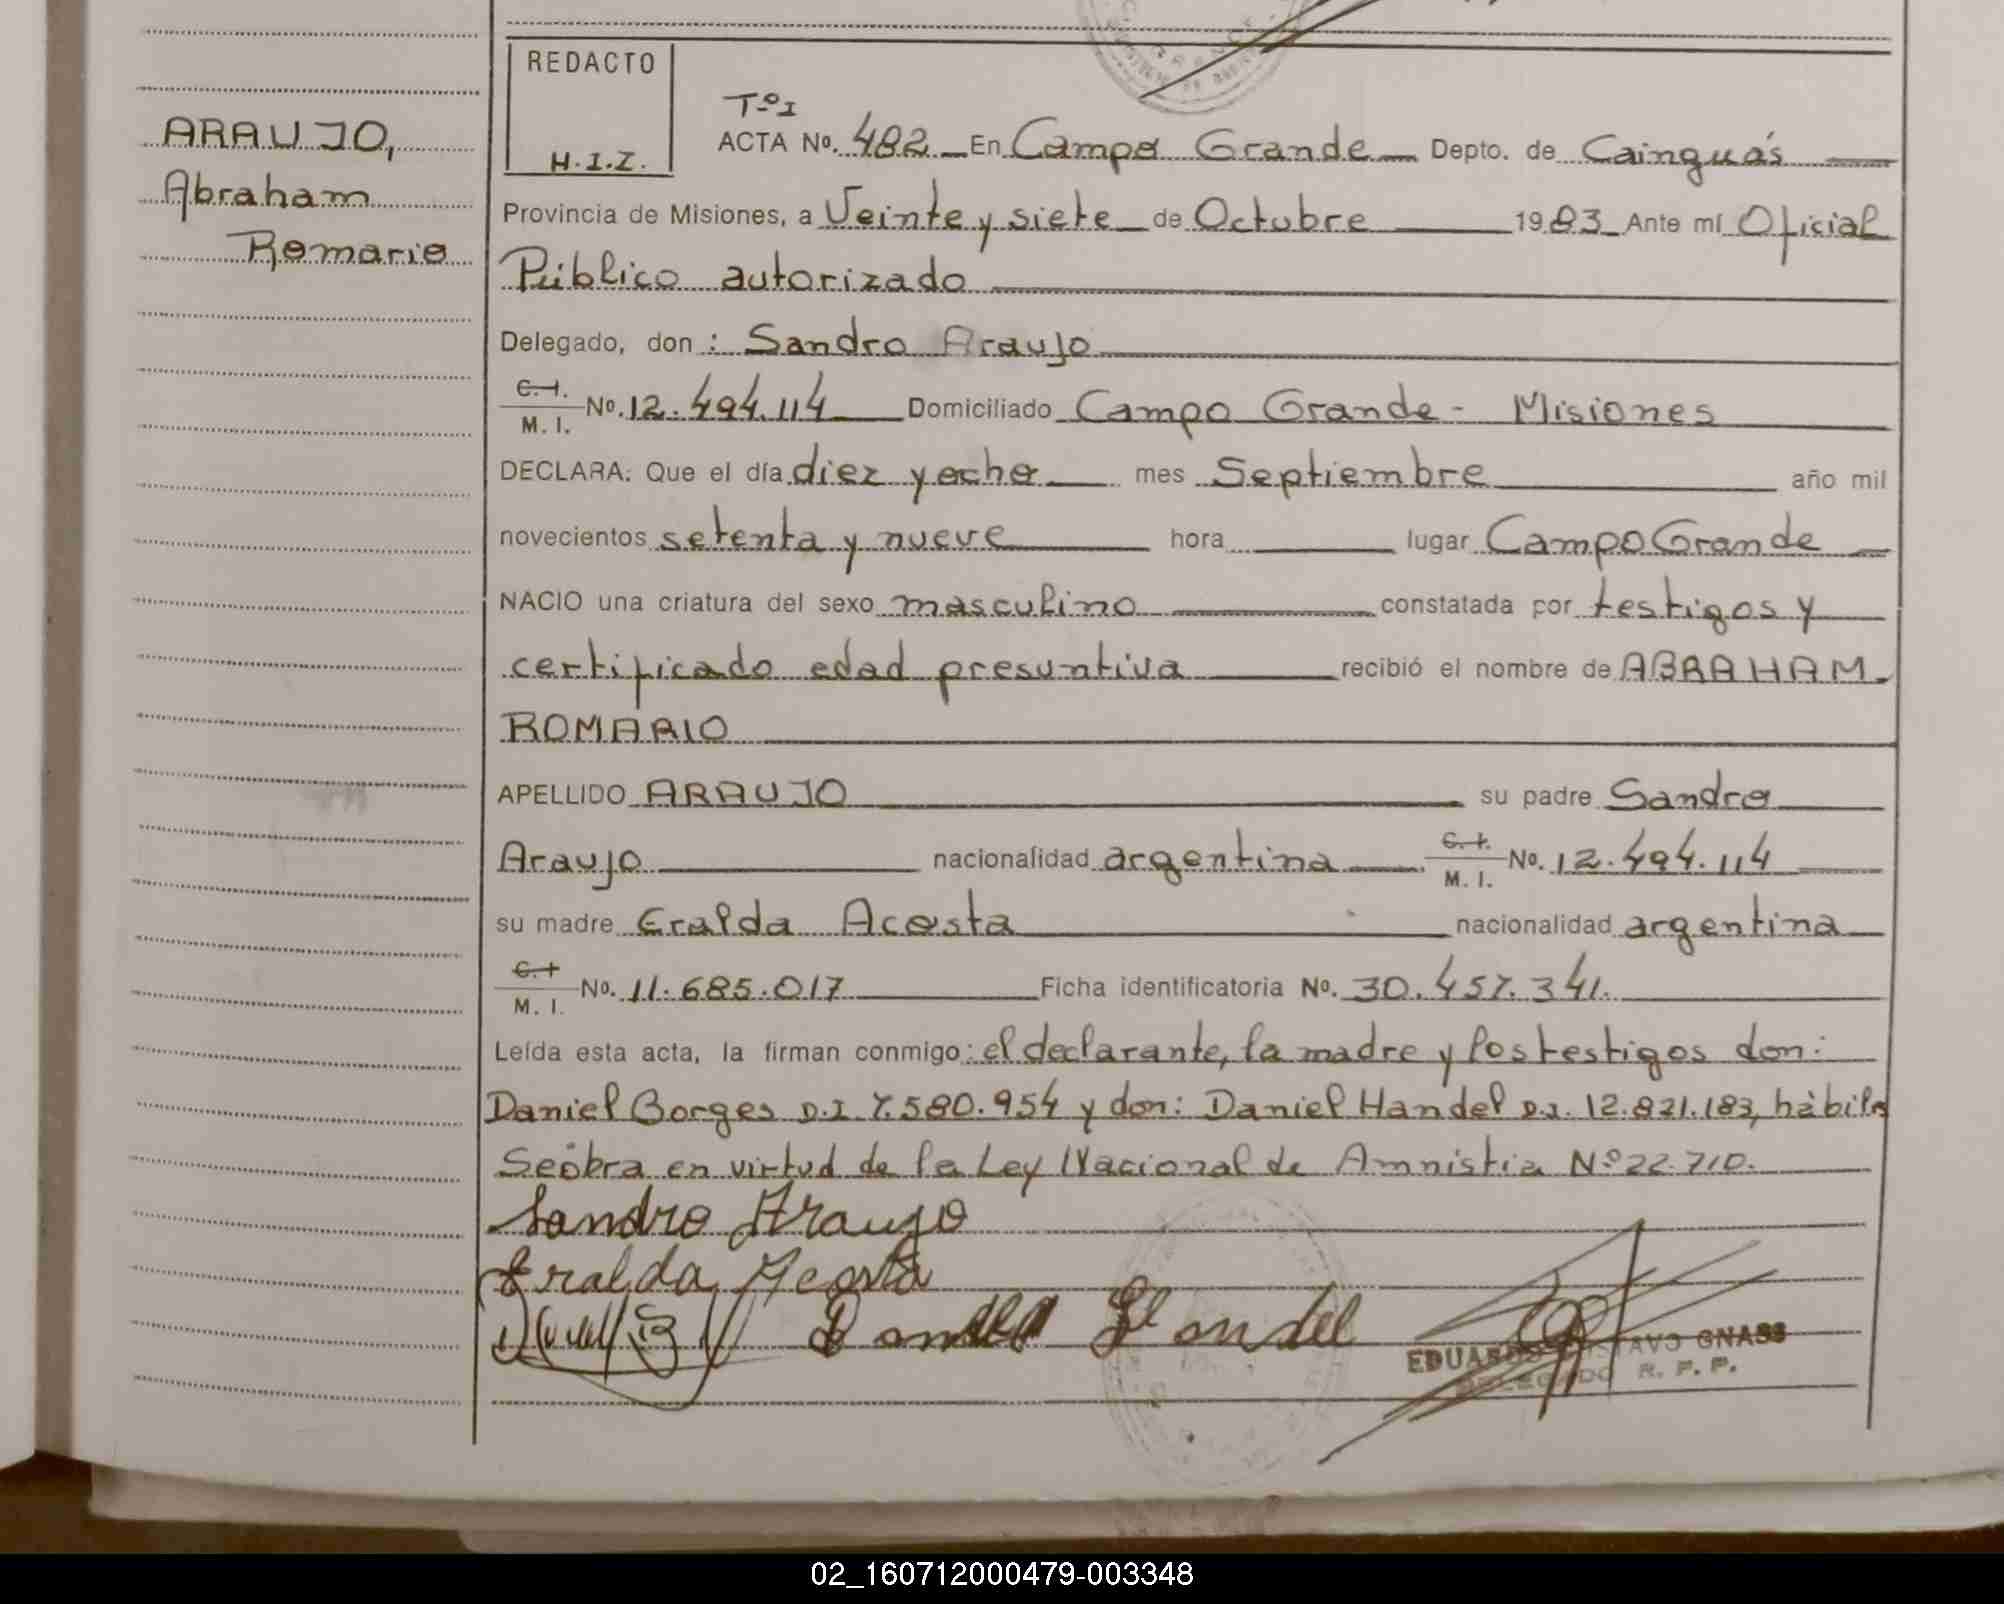 REDACTO
H.I.I.
Tº I
ARAUJO,
Abraham
Romario
ACTA Nº. 482 En Campo Grande Depto. de Cainguás
Provincia de Misiones, a Veinte y siete de Octubre 1983 Ante mí Oficial
Público autorizado
Delegado, don : Sandro Araujo
C.I. M. I. Nº. 12.494.114 Domiciliado Campo Grande - Misiones
DECLARA: Que el día diez y ocho mes Septiembre año mil
novecientos setenta y nueve hora lugar Campo Grande
NACIO una criatura del sexo masculino constatada por testigos y
certificado edad presuntiva recibió el nombre de ABRAHAM
ROMARIO
APELLIDO ARAUJO su padre Sandro
Araujo nacionalidad argentina C.I. M. I. Nº. 12.494.114
su madre Eralda Acosta nacionalidad argentina
C.I. M. I. Nº. 11.685.017 Ficha identificatoria Nº. 30.457.341.
Leída esta acta, la firman conmigo: el declarante, la madre y los testigos don:
Daniel Borges D.I. 7.580.954 y don: Daniel Handel D.I. 12.821.183, hábiles
Seobra en virtud de la Ley Nacional de Amnistia Nº 22.710.
Sandro Araujo
Eralda Acosta
Handel
EDUARDO GUSTAVO GNASS
DELEGADO R. P. P.
02_160712000479-003348